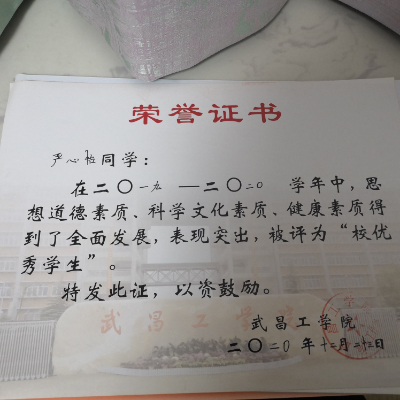 荣誉证书
严心怡同学：
在二〇一九—二〇二〇 学年中，思
想道德素质、科学文化素质、健康素质得
到了全面发展，表现突出，被评为“校优
秀学生”。
特发此证，以资鼓励。
武昌工学院
武昌工学院
二〇二〇年十二月二十三日